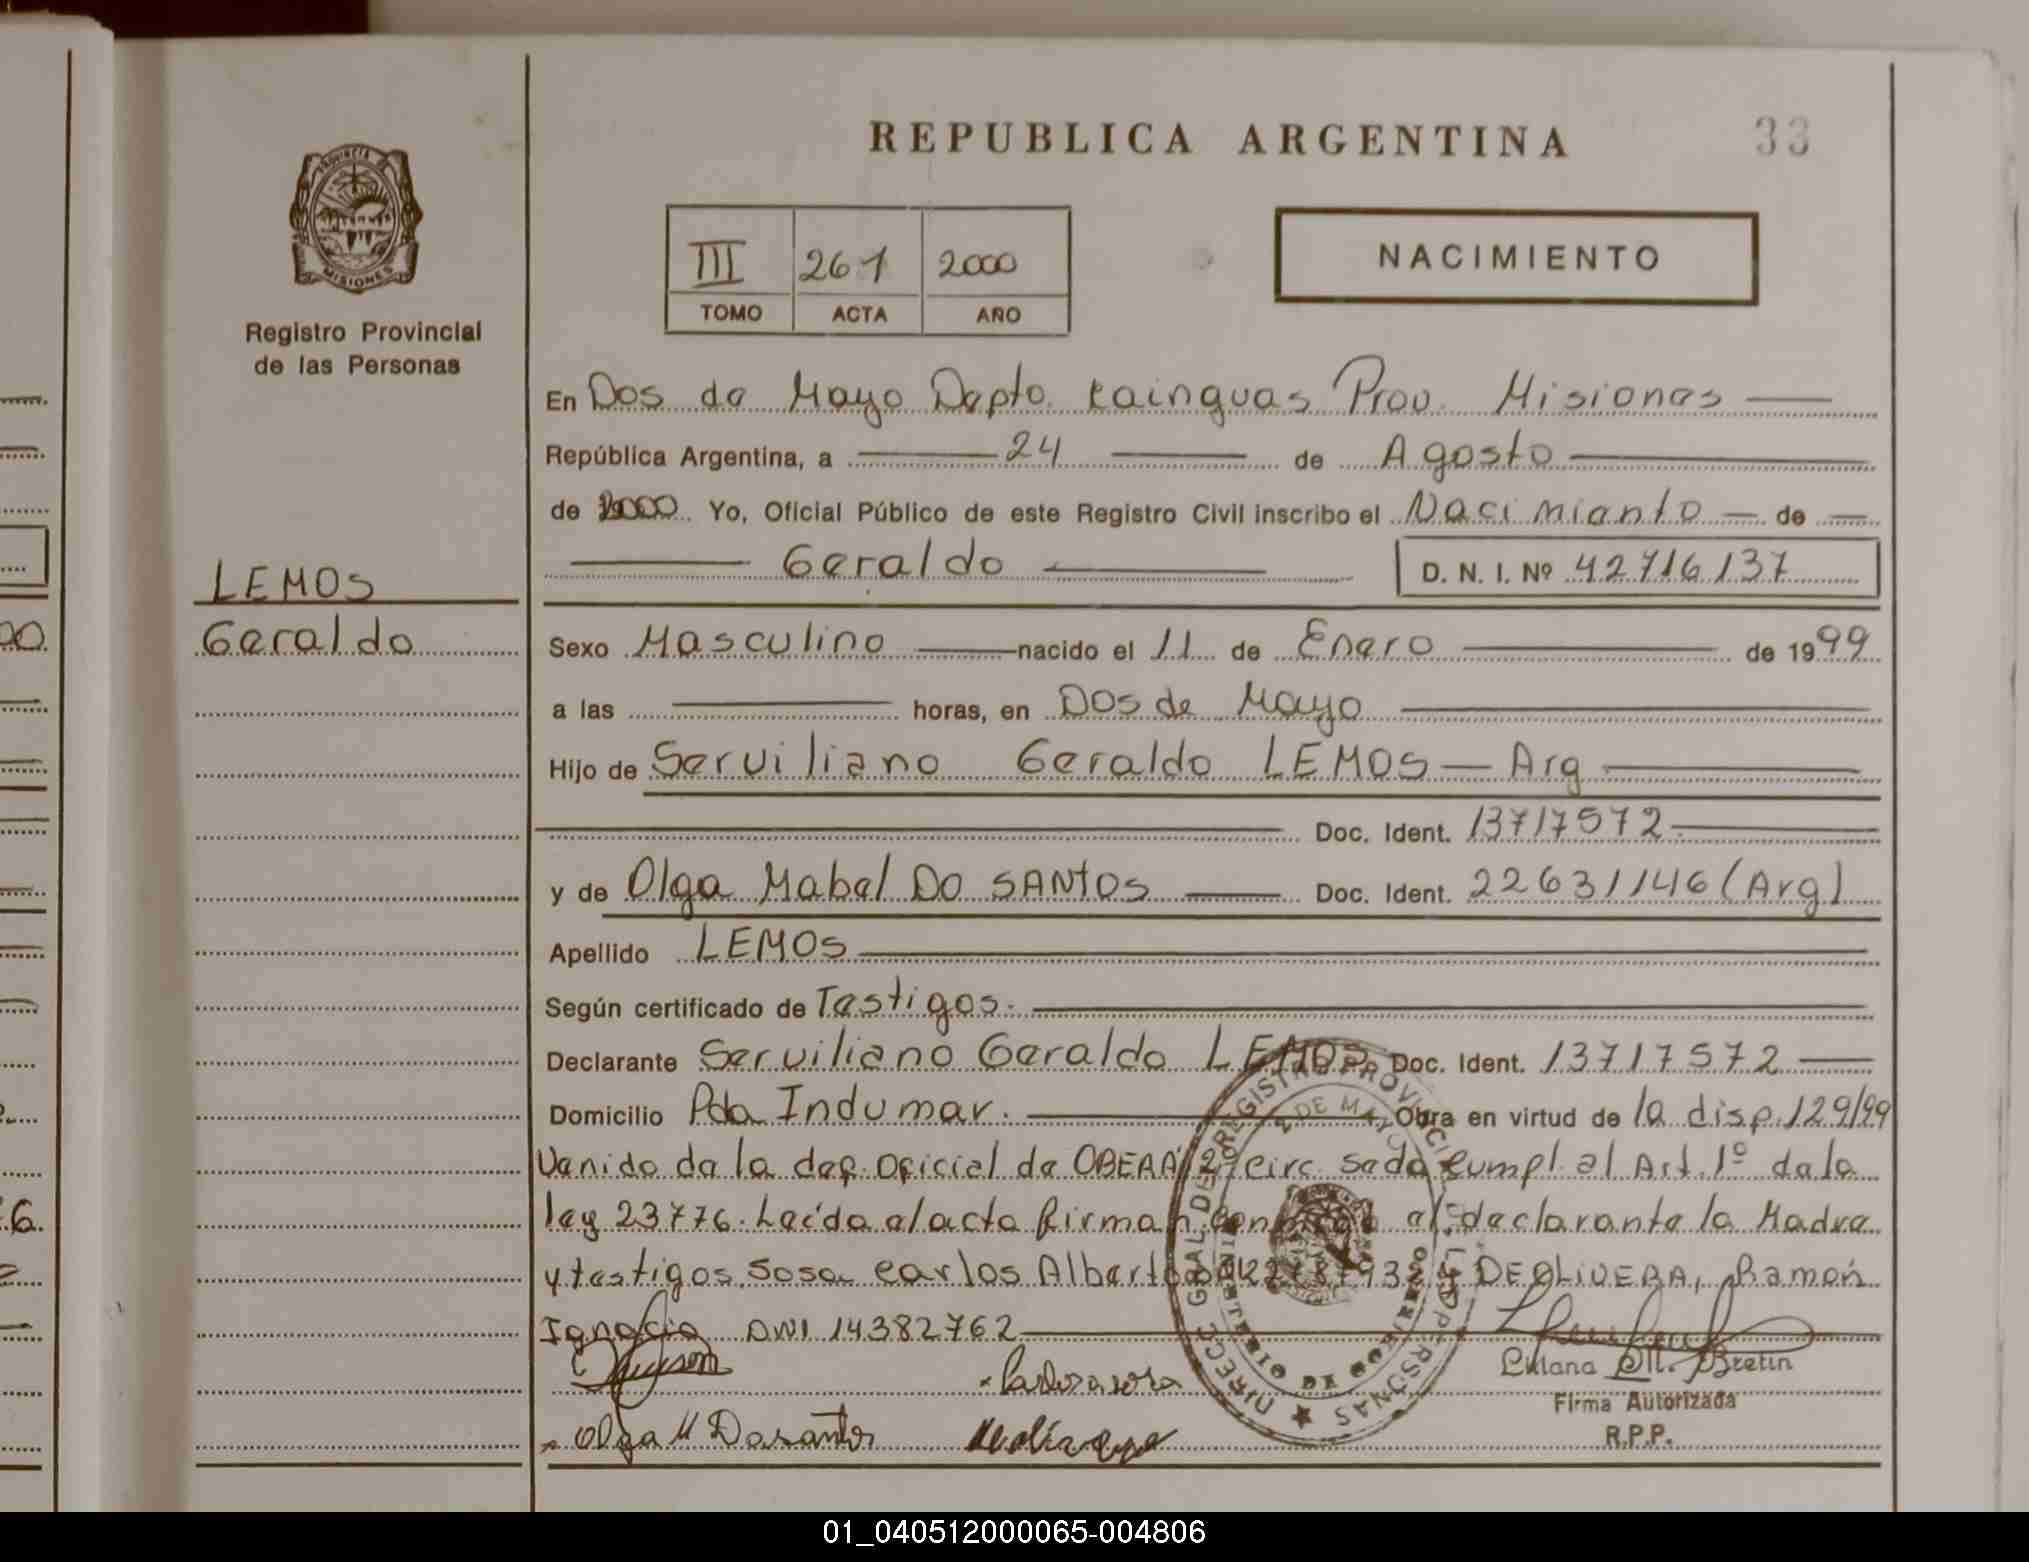 REPUBLICA ARGENTINA
33
PROVINCIA DE
MISIONES
Registro Provincial
de las Personas
III 261 2000
TOMO ACTA AÑO
NACIMIENTO
En Dos de Mayo Depto. Cainguas Prov. Misiones
República Argentina, a 24 de Agosto
de 2000 Yo, Oficial Público de este Registro Civil inscribo el Nacimiento de
Geraldo D. N. I. Nº 42716137
LEMOS
Geraldo
Sexo Masculino nacido el 11 de Enero de 1999
a las horas, en Dos de Mayo
Hijo de Serviliano Geraldo LEMOS - Arg
Doc. Ident. 13717572
y de Olga Mabel DO SANTOS Doc. Ident. 22631146 (Arg)
Apellido LEMOS
Según certificado de Testigos.
Declarante Serviliano Geraldo LEMOS Doc. Ident. 13717572
Domicilio Pda Indumar. Obra en virtud de la disp. 129/99
Venido de la def. Oficial de OBERA 2º circ. sede cumpl. al Art. 1º de la
ley 23776. Leída el acta firman conmigo el declarante la Madre
y testigos, Sosa Carlos Alberto y DEOLIVERA, Ramón
Ignacio DNI 14382762
DIRECC. GRAL. DEL REGISTRO PROVINCIAL DE LAS PERSONAS
2 DE MAYO
Liliana M. Bretin
Firma Autorizada
R.P.P.
Olga M Dosantos
01_040512000065-004806